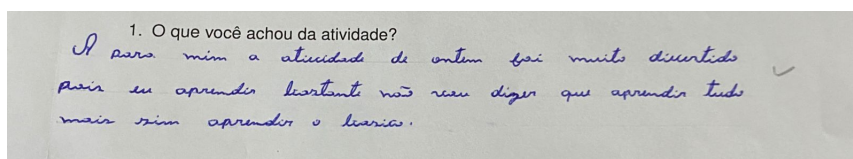 1. O que você achou da atividade?
A para mim a atividade de ontem foi muito divertido
pois eu aprendir bastante não vou dizer que aprendir tudo
mais sim aprendir o basico.